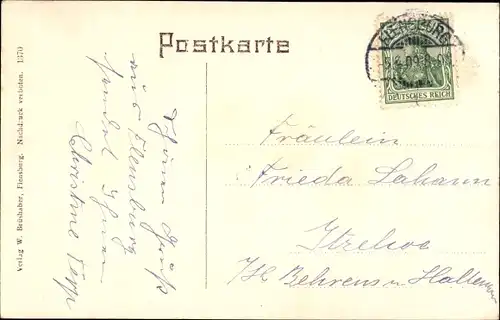 Postkarte
FLENSBURG
DEUTSCHES REICH
Verlag W. Brüshaber, Flensburg. Nachdruck verboten. 1370
Schönen Gruß
aus Flensburg
sendet Ihnen
Christine
Fräulein
Frieda Lahann
Itzehoe
Behrens u